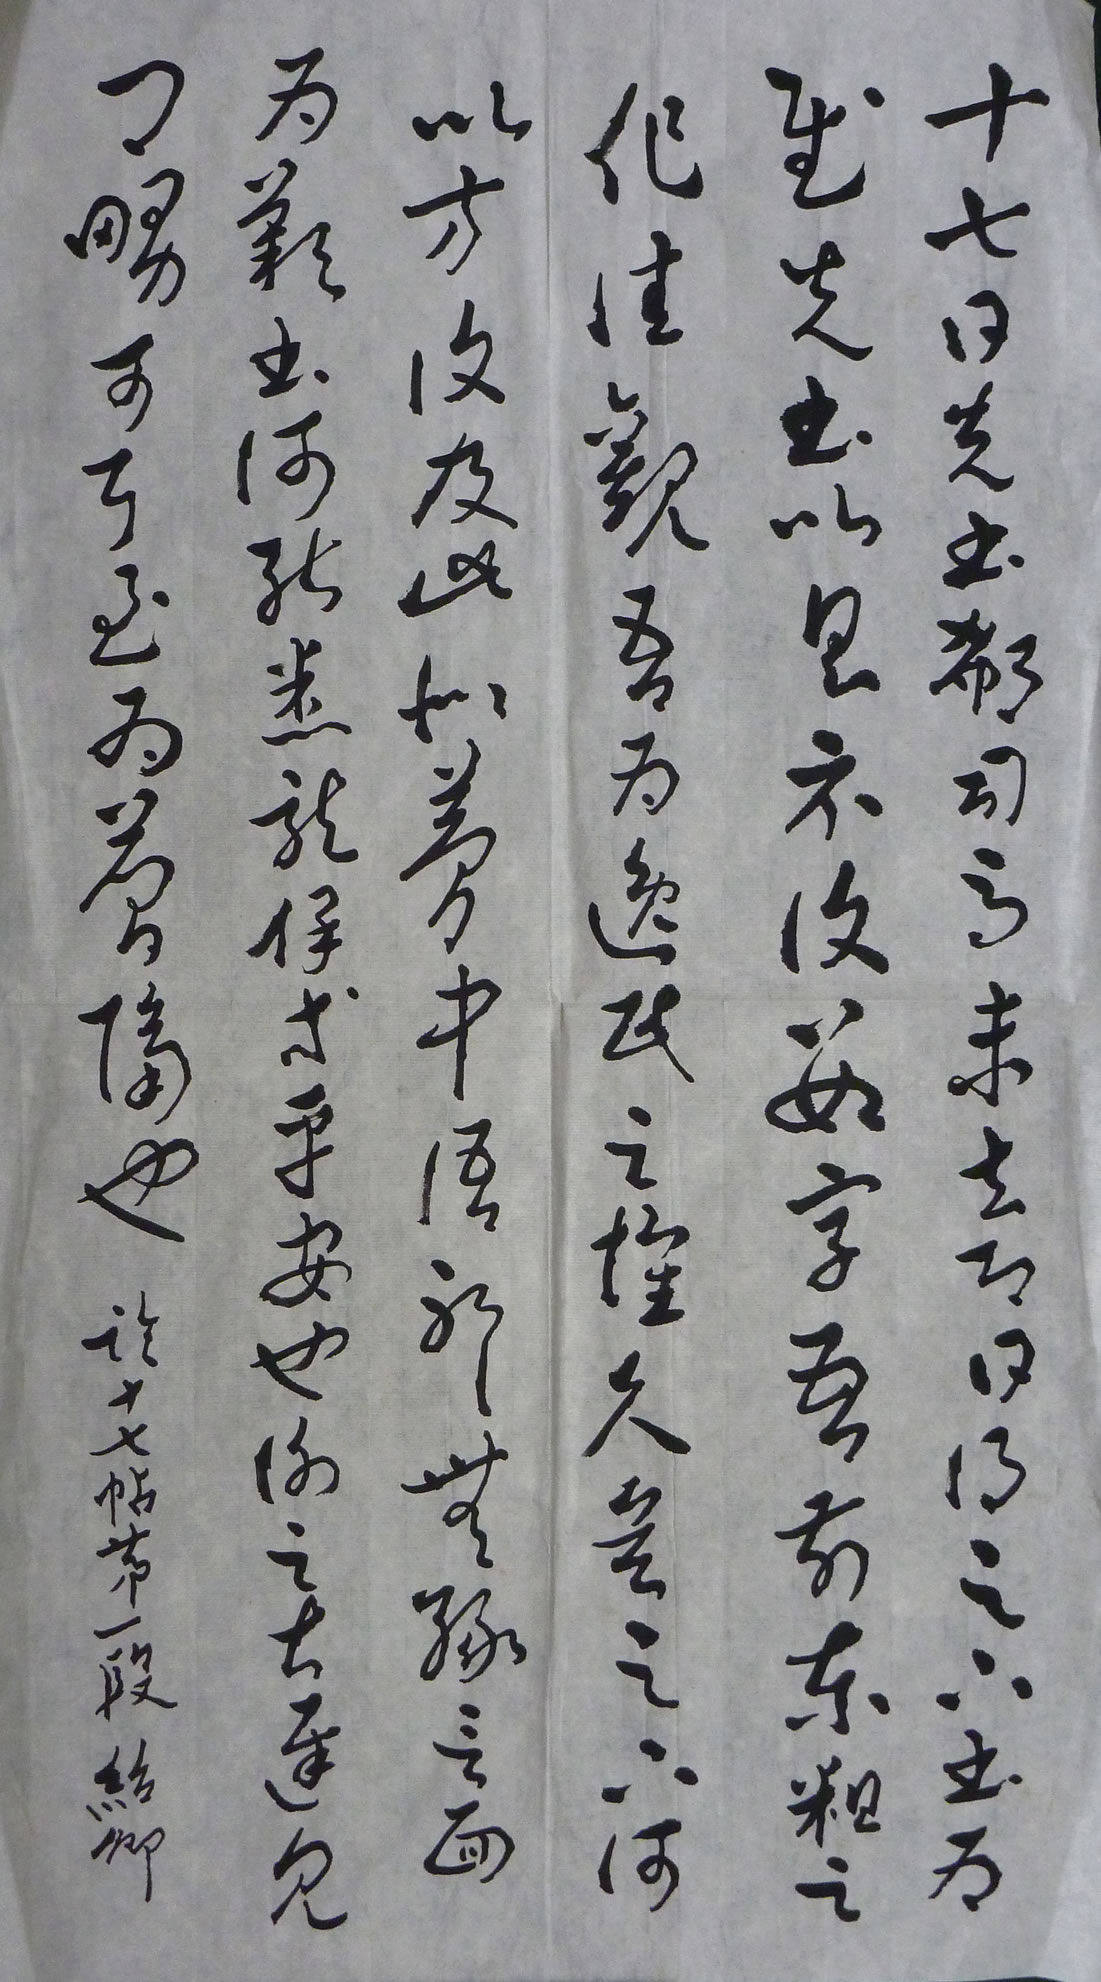 十七日先書郗司馬未去即日得足下書為
慰先書以具示復數字吾前東粗足
作佳觀吾為逸民之懷久矣足下何
以方復及此似夢中語耶無緣言面
為歎書何能悉龍保等平安也謝之甚遲見
卿舅可耳至為簡隔也 臨十七帖第一段 紹卿